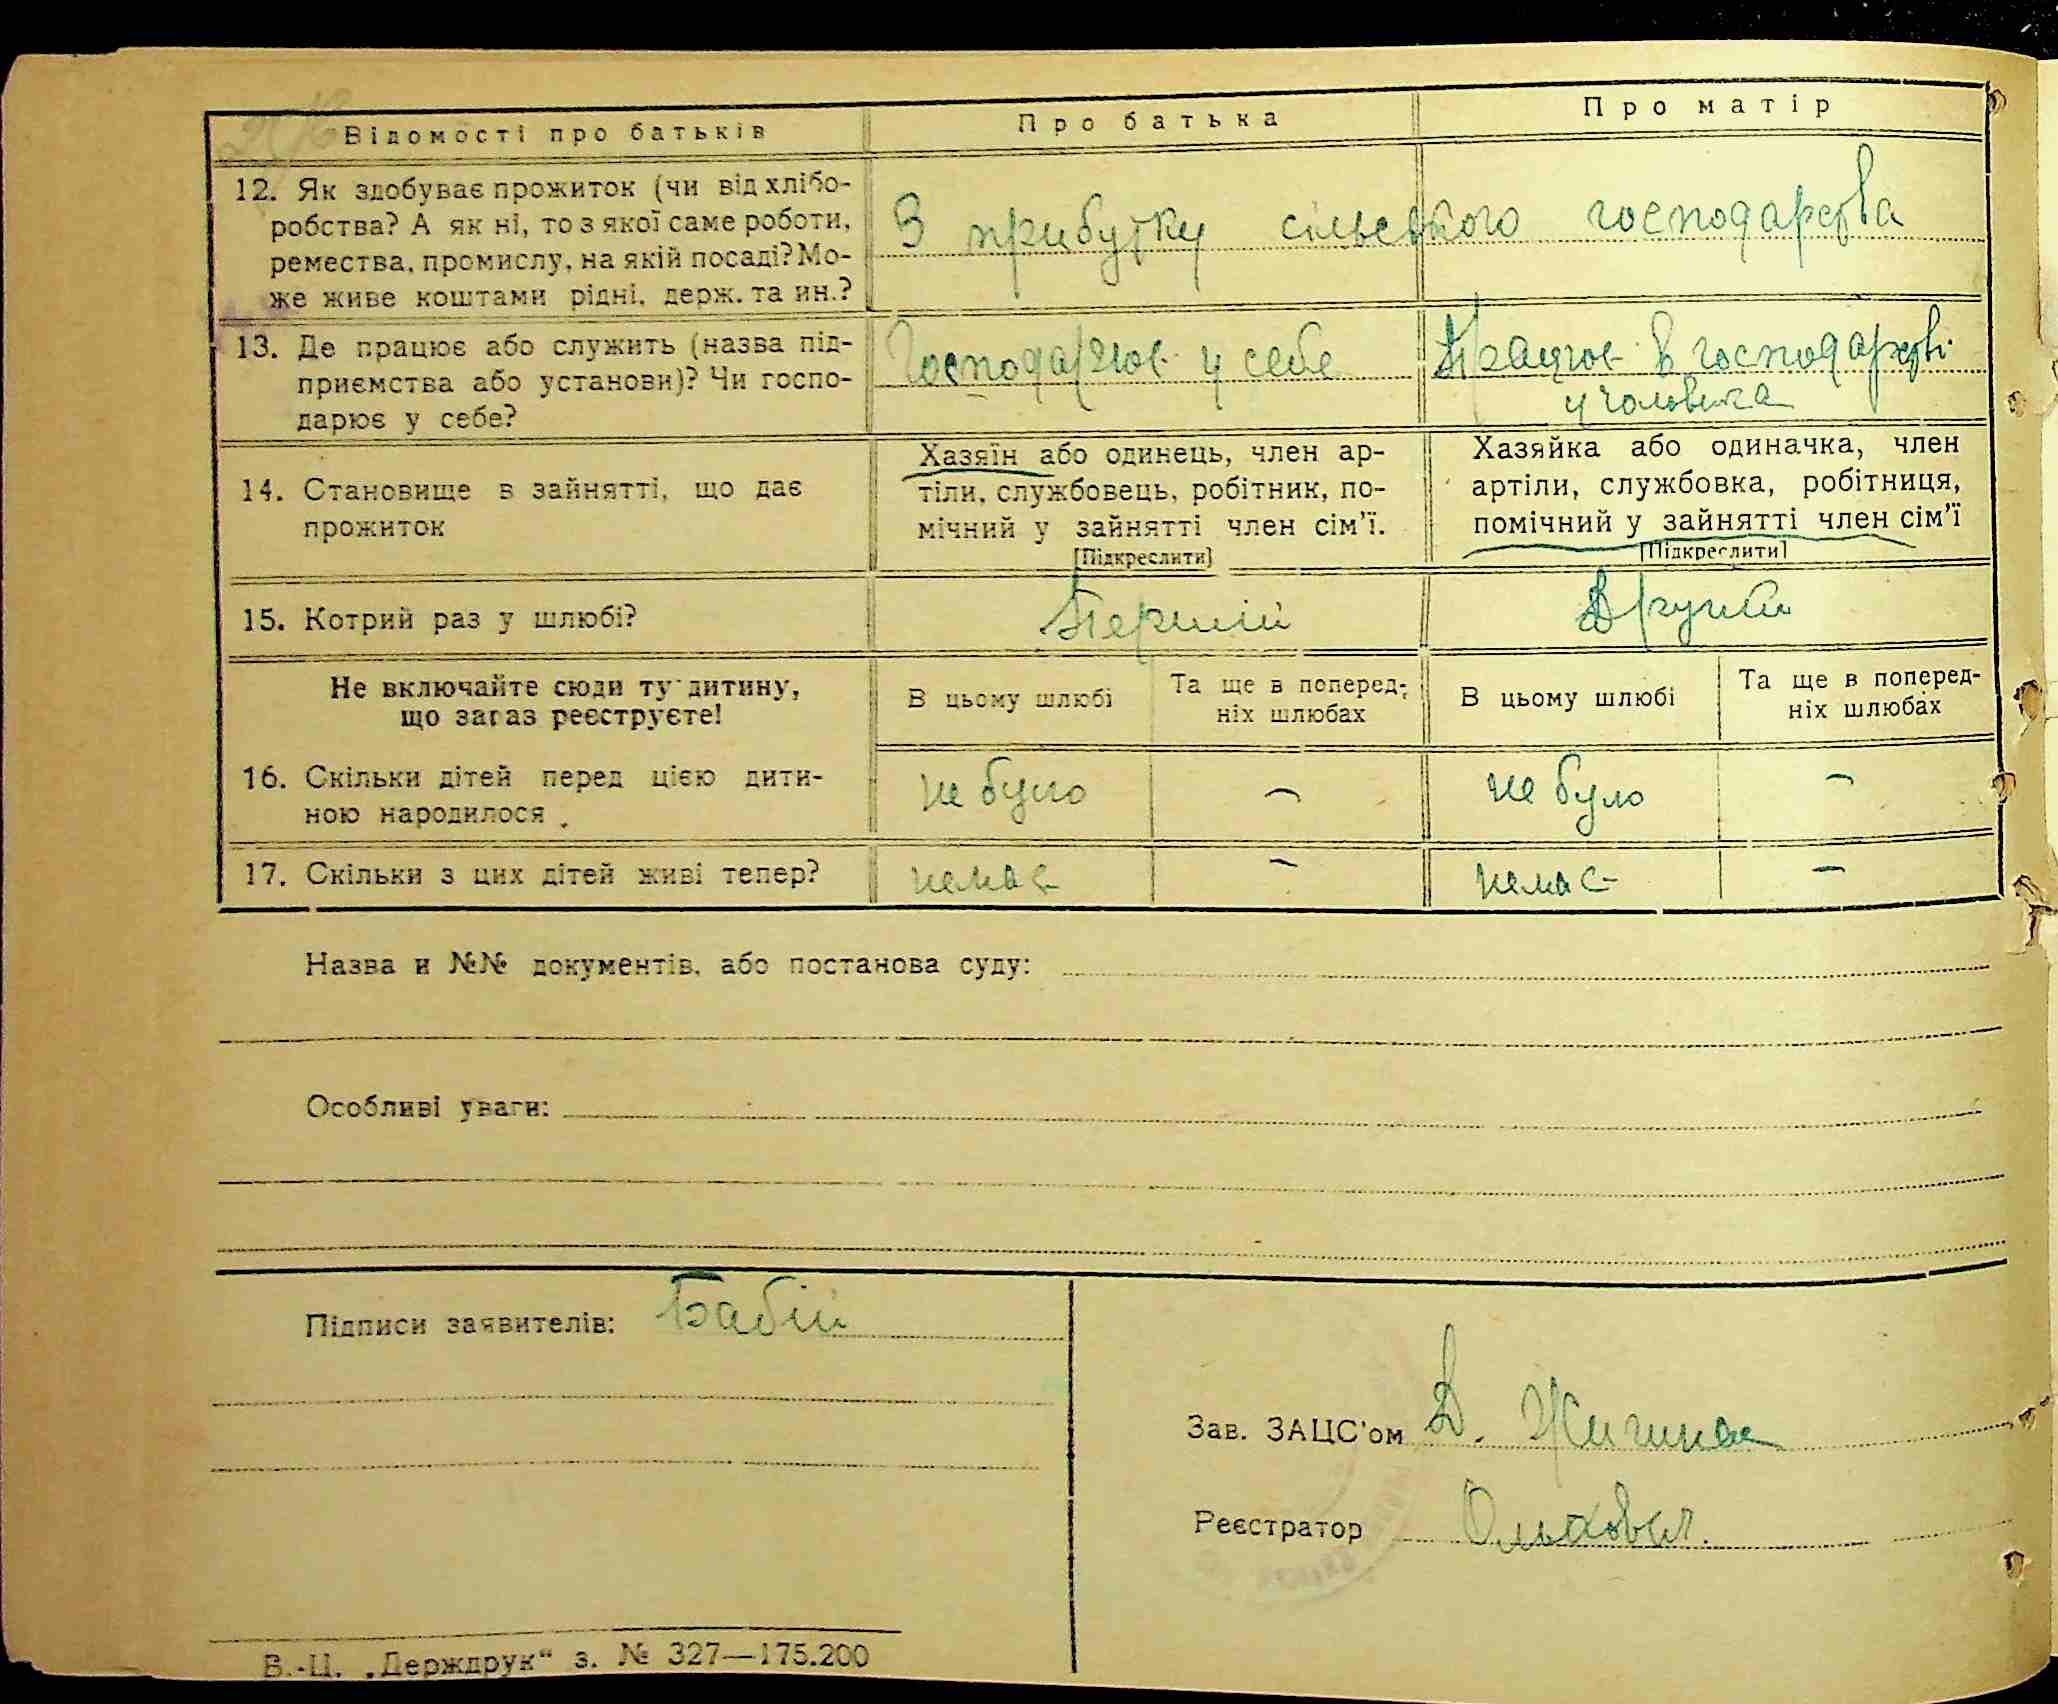 Відомості про батьків
Про батька
Про матір
12. Як здобуває прожиток (чи від хлібо-
робства? А як ні, то з якої саме роботи,
ремества, промислу, на якій посаді? Мо-
же живе коштами рідні, держ. та ин.?
З прибутку сільського господарства
13. Де працює або служить (назва під-
приємства або установи)? Чи госпо-
дарює у себе?
Господарює у себе
Працює в господарстві
у чоловіка
14. Становище в зайнятті, що дає
прожиток
Хазяїн або одинець, член ар-
тіли, службовець, робітник, по-
мічний у зайнятті член сім'ї.
[Підкреслити]
Хазяйка або одиначка, член
артіли, службовка, робітниця,
помічний у зайнятті член сім'ї
[Підкреслити]
15. Котрий раз у шлюбі?
Перший
Другий
Не включайте сюди ту дитину,
що зараз реєструєте!
В цьому шлюбі
Та ще в поперед-
ніх шлюбах
В цьому шлюбі
Та ще в поперед-
ніх шлюбах
16. Скільки дітей перед цією дити-
ною народилося
не було
—
не було
—
17. Скільки з цих дітей живі тепер?
немає
—
немає
—
Назва и №№ документів, або постанова суду:
Особливі уваги:
Підписи заявителів: Бабій
Зав. ЗАЦС'ом Д.
Реєстратор
В.-Ц. „Держдрук" з. № 327—175.200